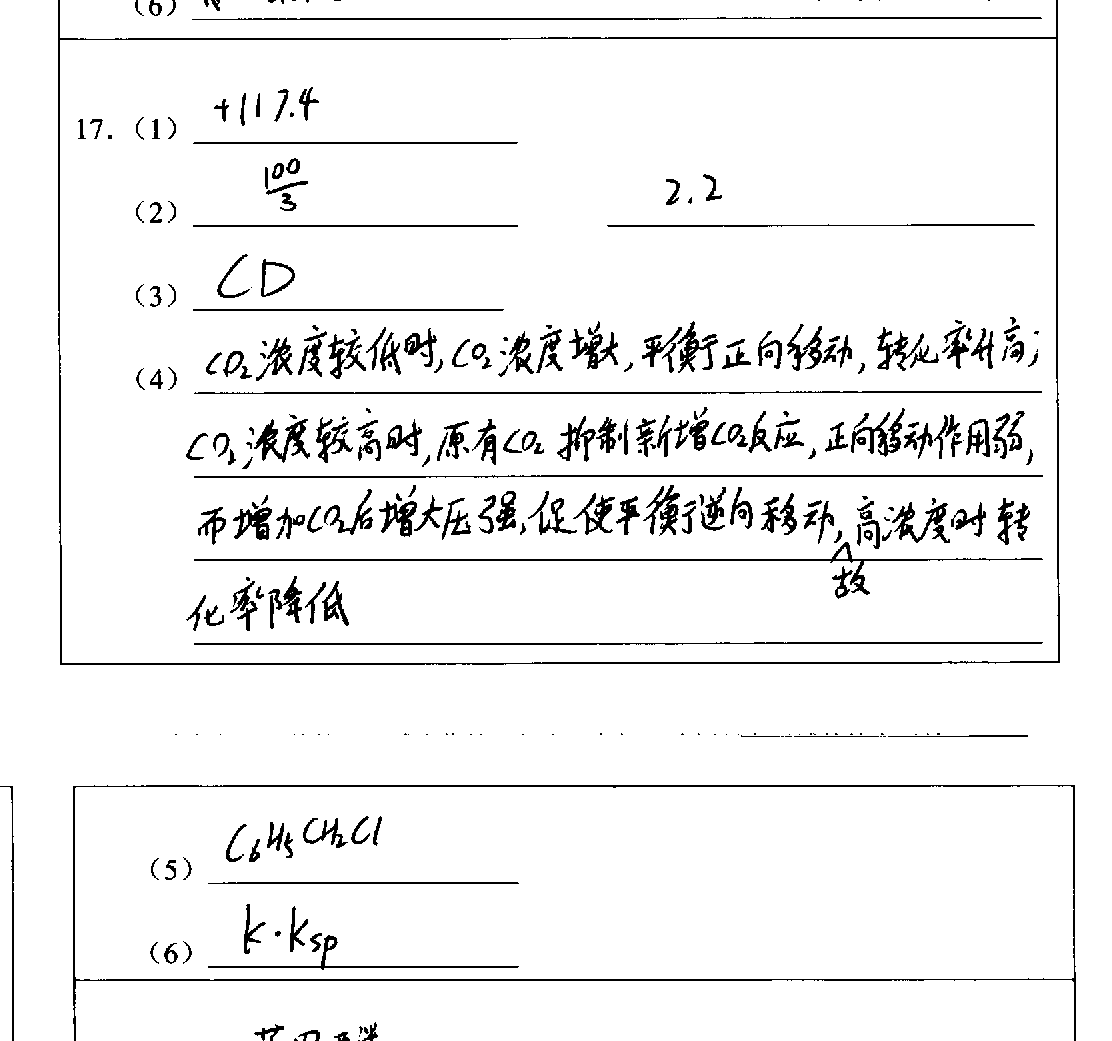 (6)
17.（1） +117.4
（2） 100/3 2.2
（3） CD
（4） CO₂浓度较低时,CO₂浓度增大,平衡正向移动,转化率升高;
CO₂浓度较高时,原有CO₂抑制新增CO₂反应,正向移动作用弱,
而增加CO₂后增大压强,促使平衡逆向移动,故高浓度时转
化率降低
（5） C₆H₅CH₂Cl
（6） K·Ksp